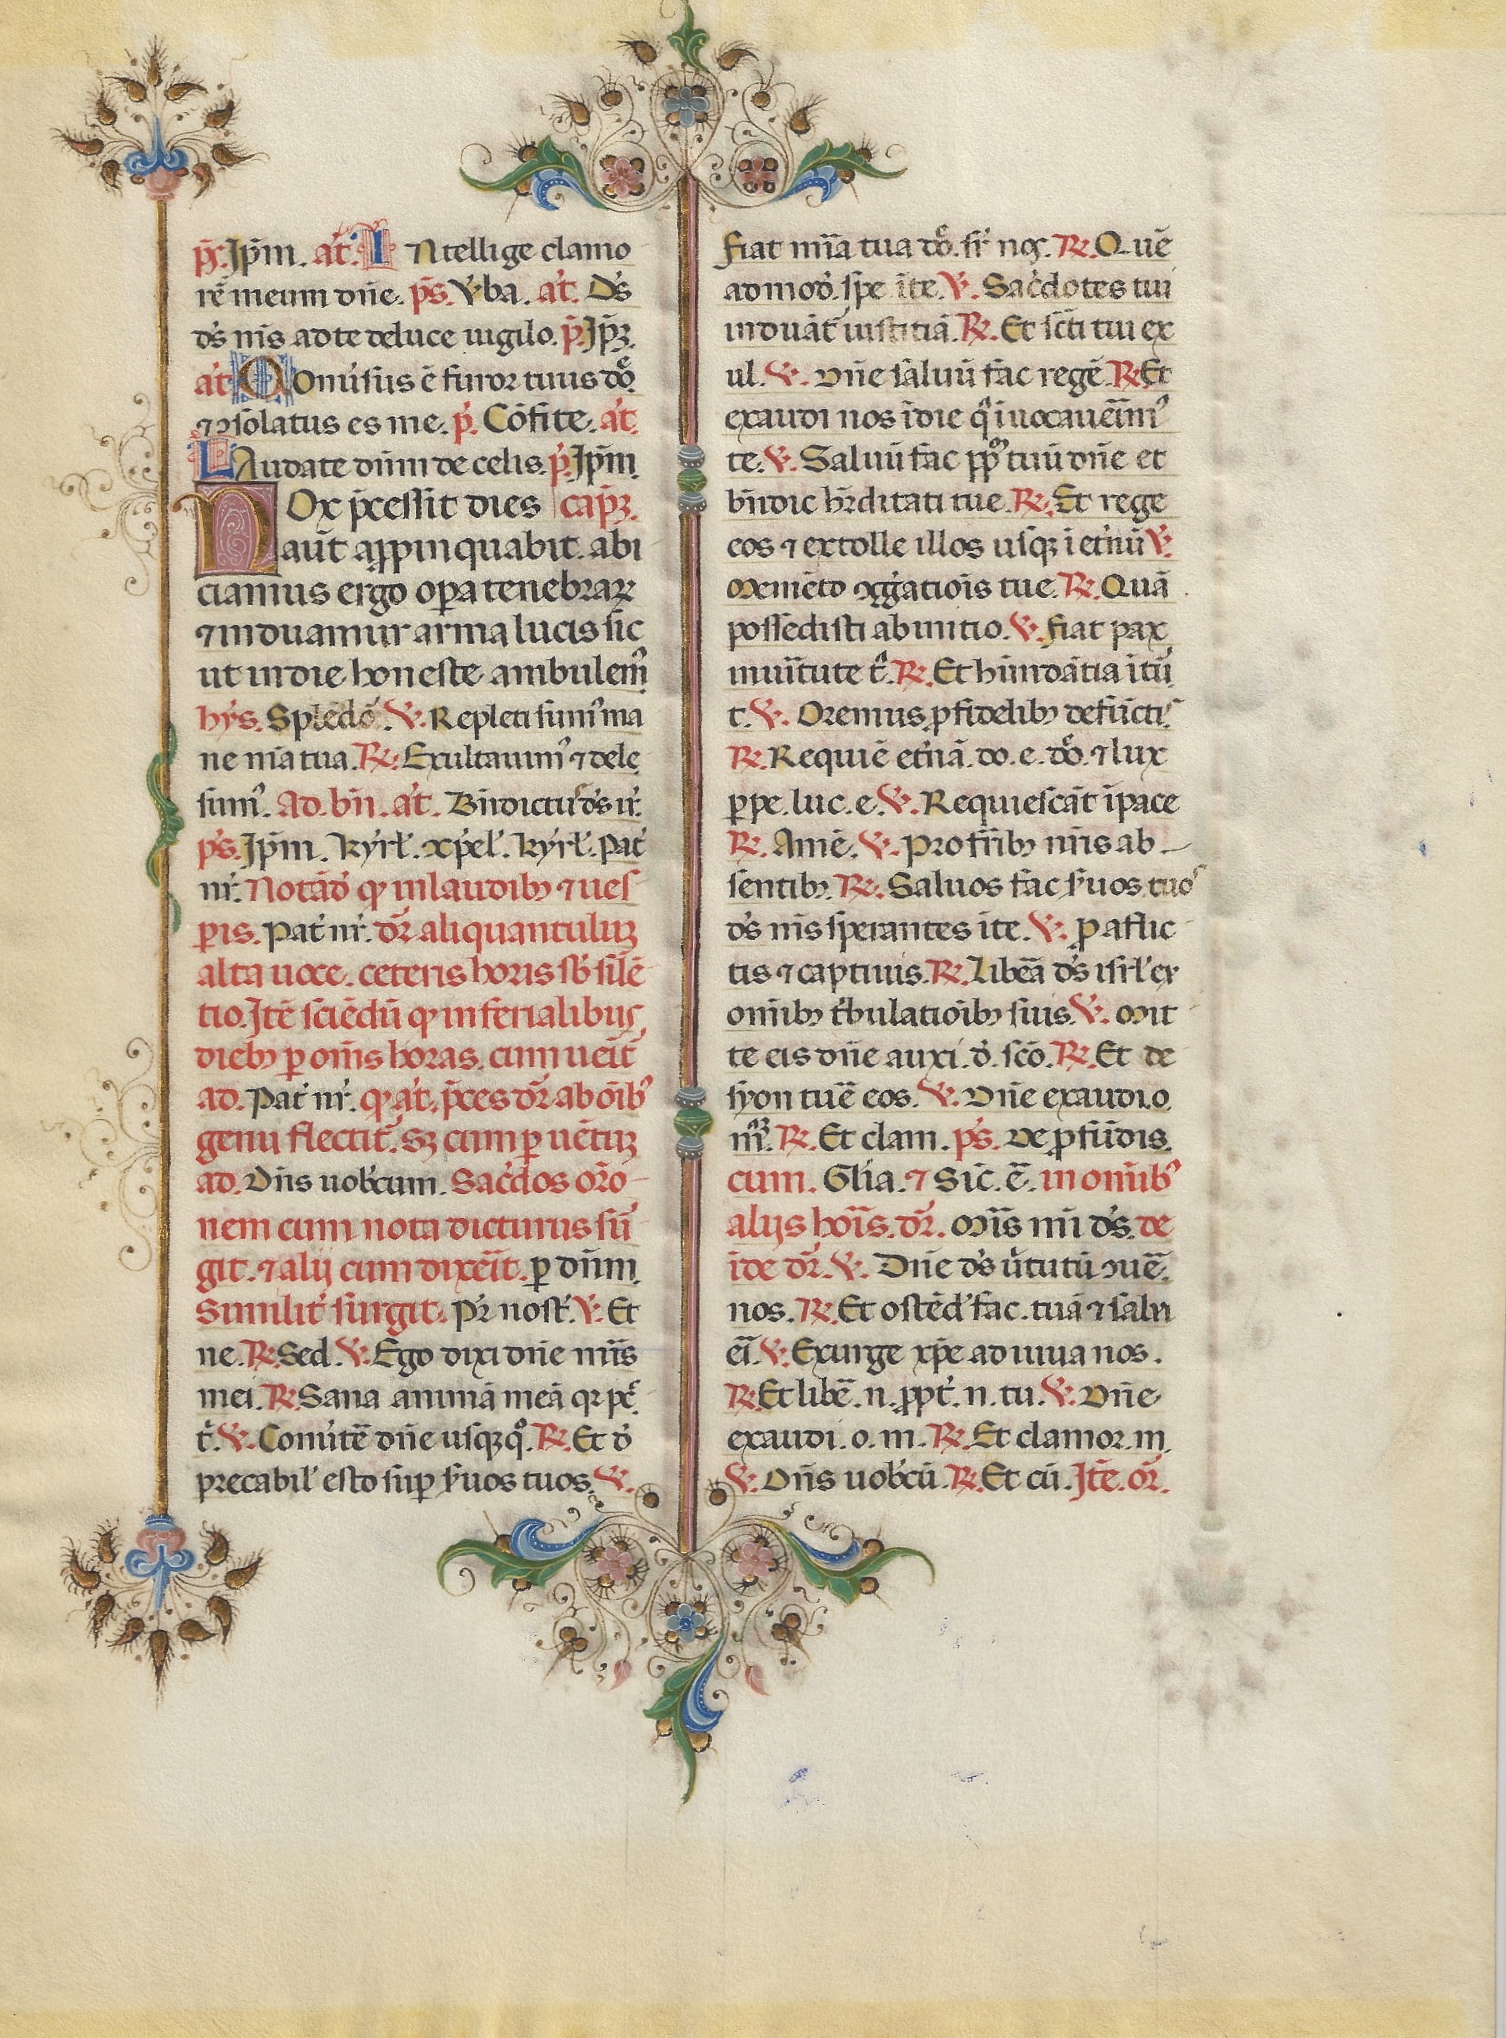 ps̄. Ip̄m. at̄. Intellige clamo
rē meum dn̄e. ps̄. Vb̓a. at̄. Ds̄
ds̄ ms̄ ad te de luce uigilo. p̄. Ip̄ꝫ.
at̄. Conuˀsus ē furor tuus do̅
⁊ ꝯsolatus es me. p̄. Cōfite. at̄.
Laudate dn̄m de celis. p̄. Ip̄m
Nox p̄cessit dies cap̄ꝫ.
aut̄ aꝓpinquabit. abi
ciamus ergo oꝑa tenebraꝝ
⁊ induamur arma lucis sic
ut in die honeste ambulemꝰ
hȳs. Splēdō. ℣. Repleti sumꝰ ma
ne mi̅a tua. ℟. Exultauimꝰ ⁊ dele
sumꝰ. Ad. bn̄. at̄. Bn̄dictus ds̄ ir̄.
ps̄. Ip̄m. kyrł. xp̄eł. kyrł. Pat̄
nr̄. Notād̄ ꝙ in laudibꝫ ⁊ ues
ꝑis. Pat̄ nr̄. dr̄ aliquantuluꝫ
alta uoce. ceteris horis sb̄ silē
tio. Itē sciēdū ꝙ in ferialibus
diebꝫ ꝑ om̄s horas. cum ueīt̄
ad. Pat̄ nr̄. ꝙ at̄. p̄ces dr̄ ab oīb̓
genu flectit̄. Sꝫ cum ꝑuētuꝫ
ad. Dn̄s uob̓cum. Sac̓dos or̄o
nem cum nota dicturus sur̄
git. ⁊ alij cum dixe̅it. ꝑ dn̄m.
Similit̄ surgit. Pr̄ nost̄. ℣. Et
ne. ℟. Sed. ℣. Ego dixi dn̄e mis̄
mei. ℟. Sana animā meā qꝛ pc̄
t̄. ℣. Conuˀtē dn̄e usqꝫ qͦ. ℟. Et d̄
precabil̓ esto suꝑ s̓uos tuos. ℣.
fiat mi̅a tua do̅. sr̄ nos. ℟. Quē
admod̄. spe ī te. ℣. Sac̓dotes tui
induāt̄ iustitiā ℟. Et sc̄ti tui ex
ul. ℣. Dn̄e saluū fac regē. ℟. Et
exaudi nos ī die q̄ īuocauei̅mꝰ
te. ℣. Saluū fac pp̄lͫ tuū dn̄e et
bn̄dic hr̄editati tue. ℟. Et rege
eos ⁊ extolle illos usqꝫ ī etn̓ū ℣.
Memēto ꝯg̓gatiois̄ tue. ℟. Quā
possedisti ab initio. ℣. fiat pax
in uir̄tute t̄. ℟. Et hūndātia ī tur̄
t. ℣. Oremus ꝓ fidelibꝫ defūctis
℟. Requiē etn̓ā. do. e. do̅. ⁊ lux
ꝑpe. luc. e. ℣. Requiescāt ī pace
℟. Amē. ℣. Pro fr̄ibꝫ nr̄is ab
sentibꝫ. ℟. Saluos fac s̓uos tuos
ds̄ ms̄ sperantes ī te. ℣. ꝓ aflic
tis ⁊ captiuis. ℟. Libe̅a ds̄ isrł ex
omībꝫ t̓bulatioībꝫ suis. ℣. Mit
te eis dn̄e auxi. d̄. scō. ℟. Et de
syon tue̅ eos. ℣. Dn̄e exaudi o.
m̄. ℟. Et clam. ps̄. De ꝓfūdis.
cum. Glīa. ⁊ Sic. ē. in omīb̓
alijs hor̄is. dr̄. Mis̄ mī ds̄. de
īde dr̄. ℣. Dn̄e ds̄ u̓tutū ꝯue̅.
nos. ℟. Et ostēd̄ fac. tuā ⁊ salui
ei̅. ℣. Exurge xp̄e adiuua nos.
℟. Et libe̅. n. ꝓpt̄. n. tu. ℣. Dn̄e
exaudi. o. m. ℟. Et clamor. m.
℣. Dn̄s uob̓cū. ℟. Et cū. Itē. or̄.